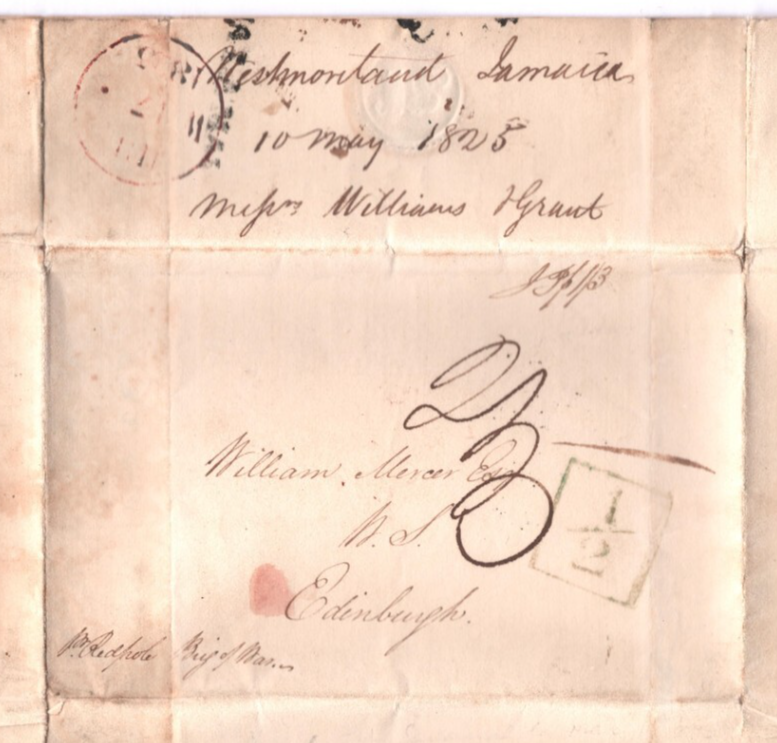 Westmorland Jamaica
10 May 1825
Messrs Williams & Grant
William Mercer Esqr
W. S.
Edinburgh.
1/2
Pr Redpole Brig of War